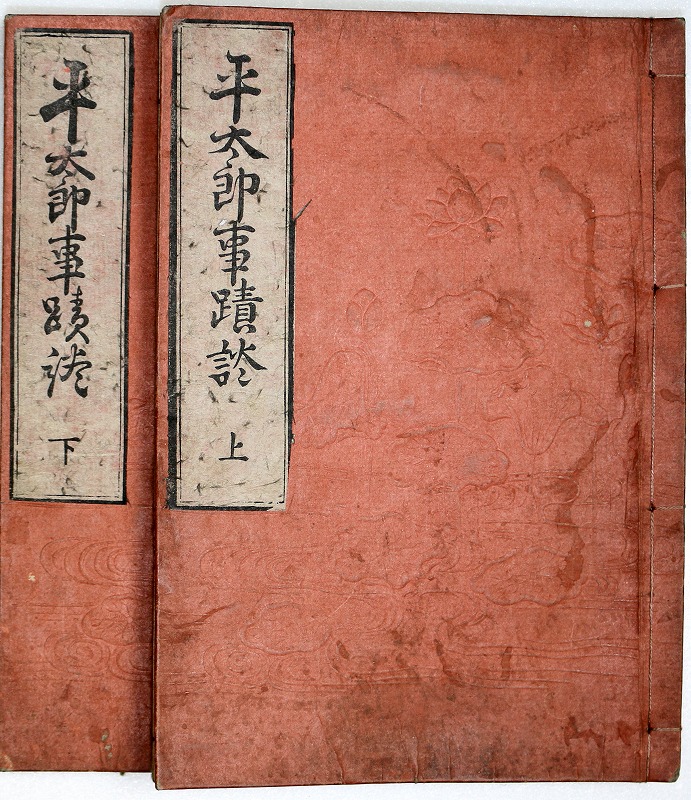 平太郎事蹟談
上
平太郎事蹟談
下